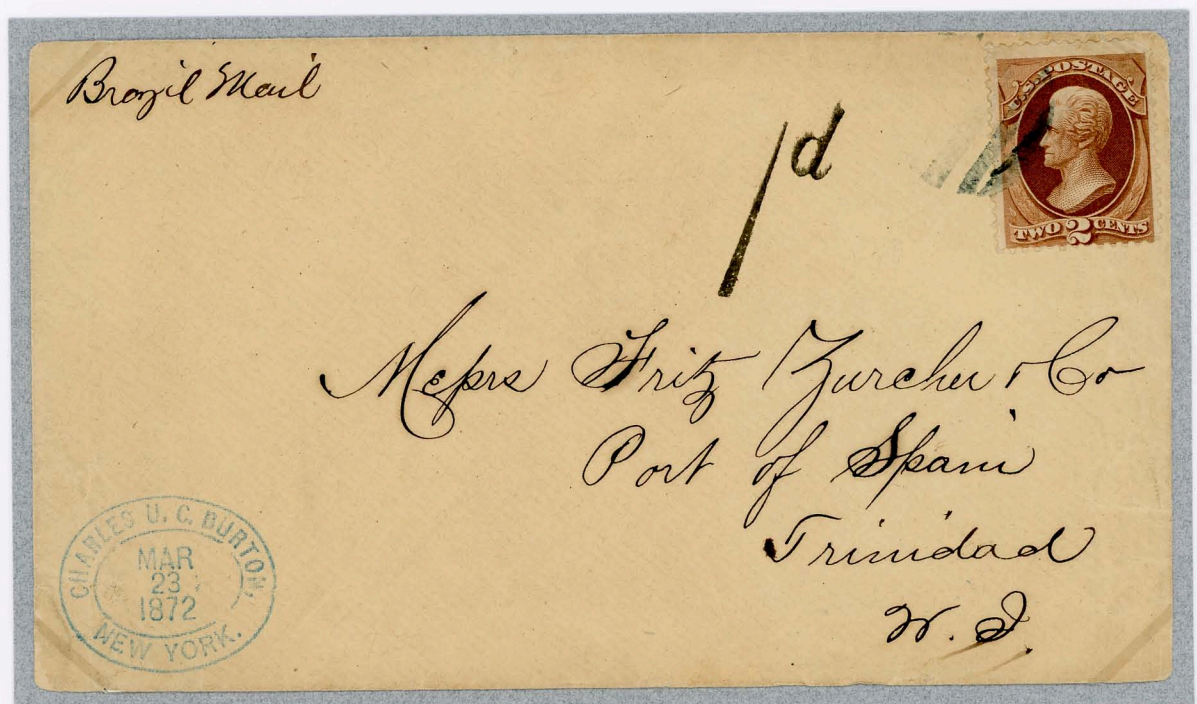 Brazil Mail
U.S. POSTAGE
TWO 2 CENTS
1d
Messrs Fritz Zurcher & Co
Port of Spain
Trinidad
W. I.
CHARLES U. C. BURTON,
MAR
23
1872
NEW YORK.